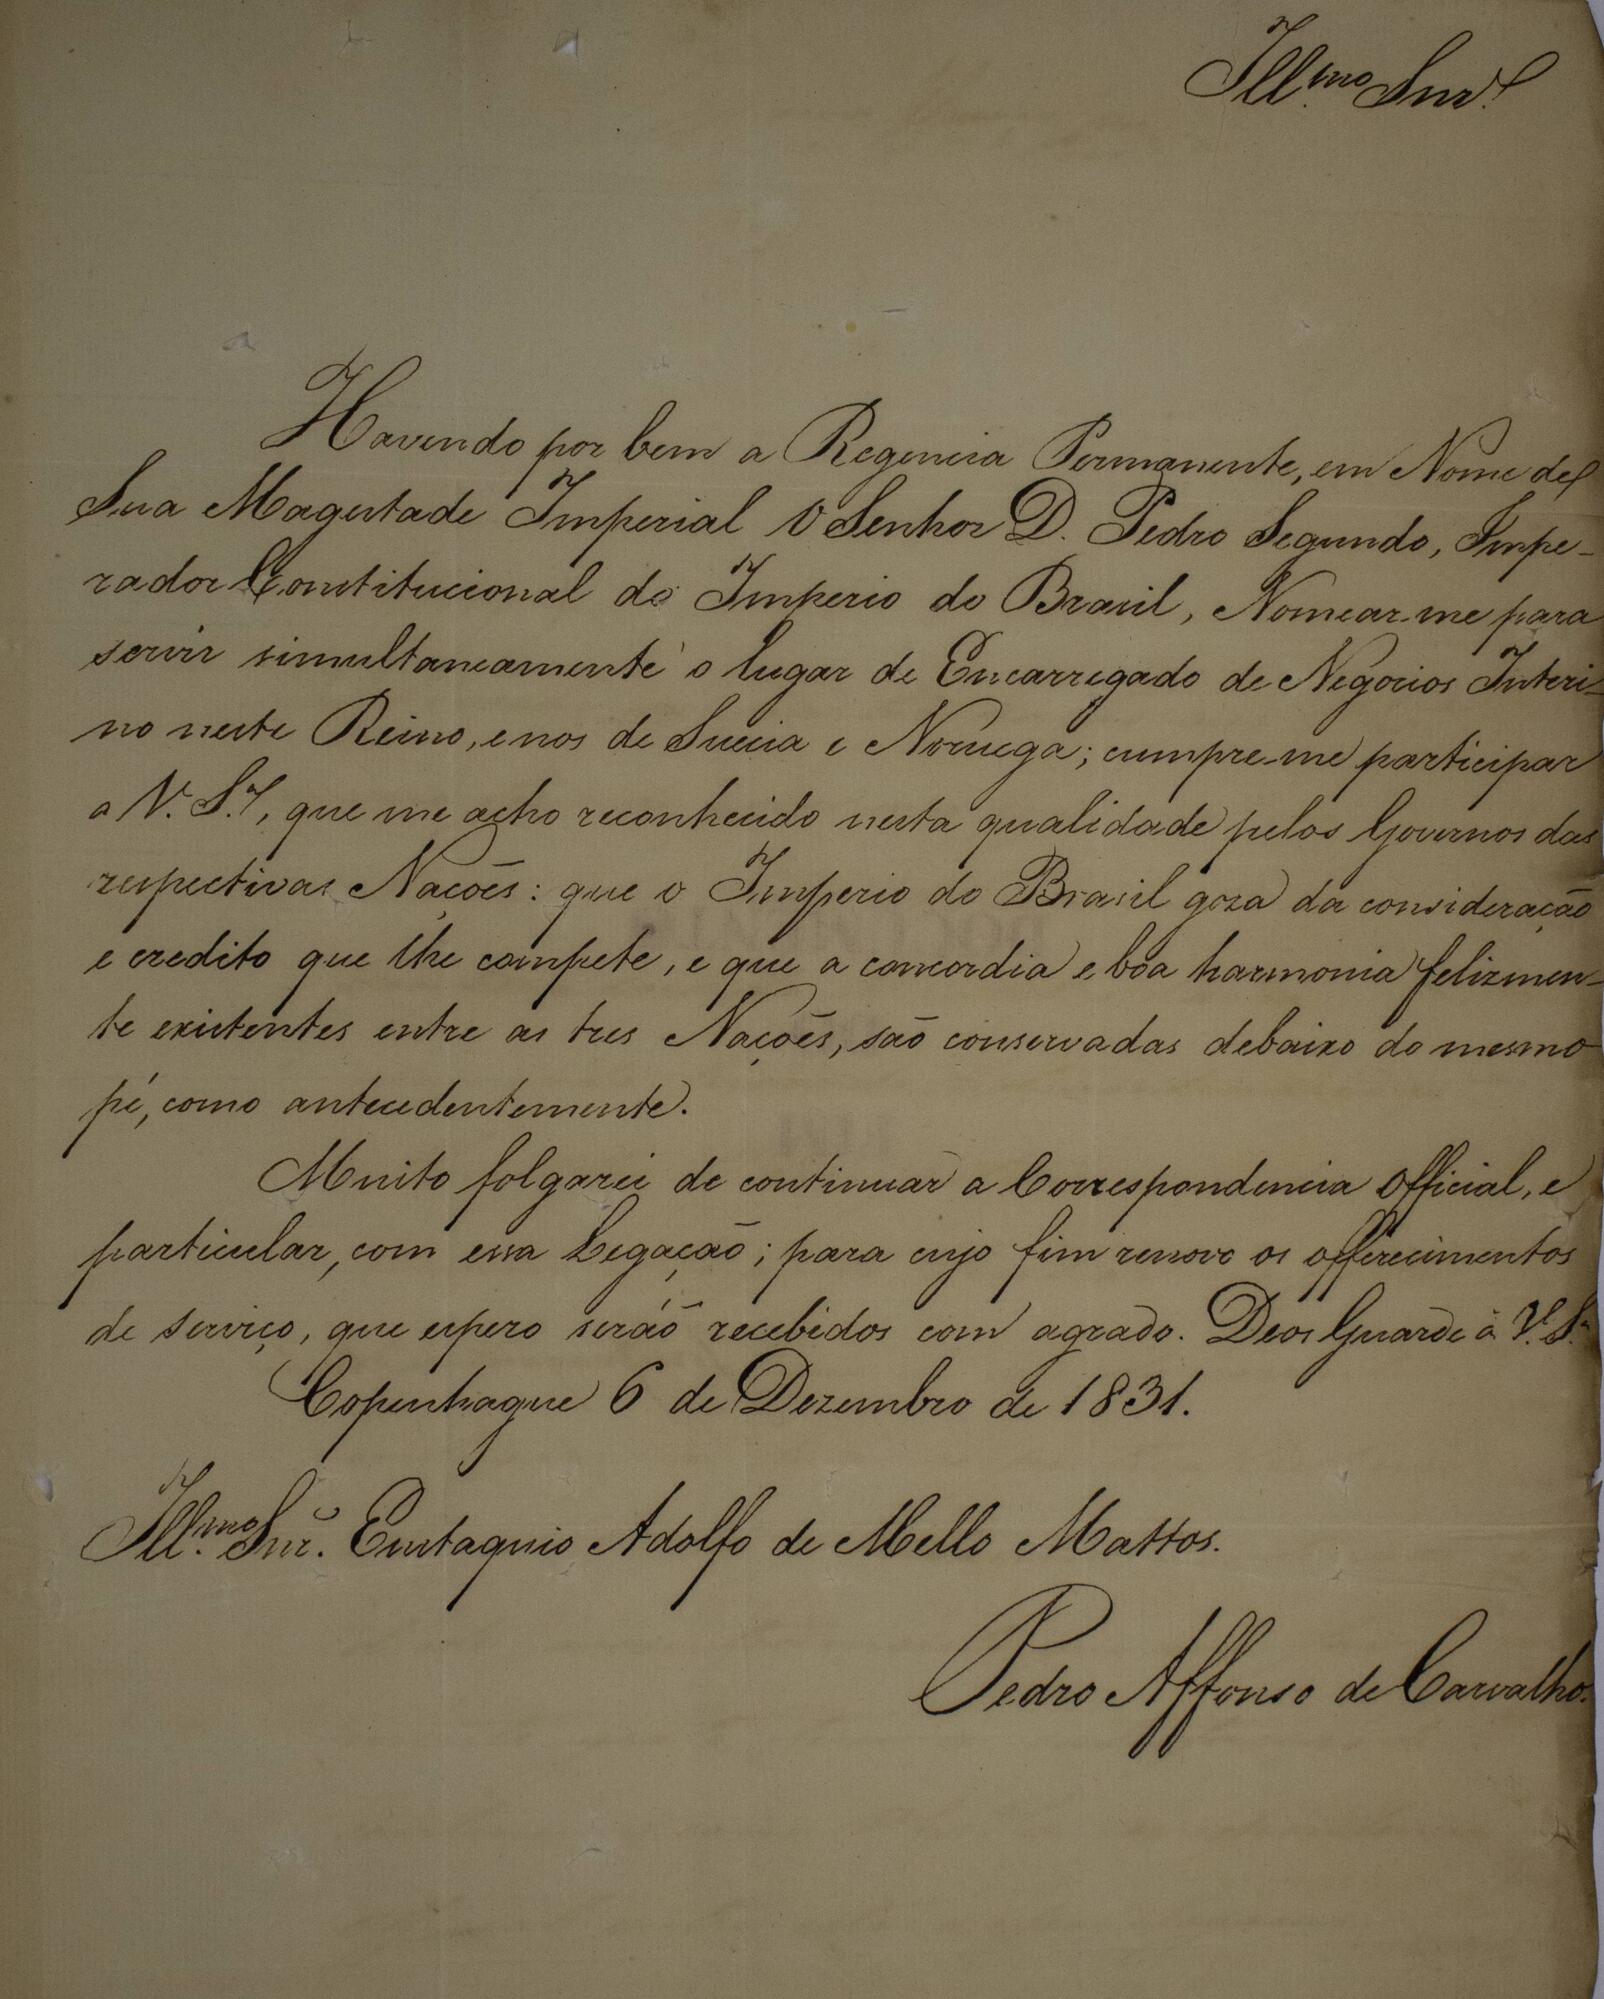 Ill.mo Snr.
Havendo por bem a Regencia Permanente, em Nome de
Sua Magestade Imperial O Senhor D. Pedro Segundo, Impe-
rador Constitucional do Imperio do Brasil, Nomear-me para
servir simultaneamente o lugar de Encarregado de Negocios Interi-
no neste Reino, e nos de Suecia e Noruega; cumpre-me participar
a V. S.ª, que me acho reconhecido nesta qualidade pelos Governos das
respectivas Nações: que o Imperio do Brasil goza da consideração
e credito que lhe compete, e que a concordia e boa harmonia felizmen-
te existentes entre as tres Nações, são conservadas debaixo do mesmo
pé, como antecedentemente.
Muito folgarei de continuar a Correspondencia Official, e
particular, com essa Legação; para cujo fim renovo os offerecimentos
de serviço, que espero serão recebidos com agrado. Deos Guarde á V. S.ª
Copenhague 6 de Dezembro de 1831.
Ill.mo Snr. Eustaquio Adolfo de Mello Mattos.
Pedro Affonso de Carvalho.